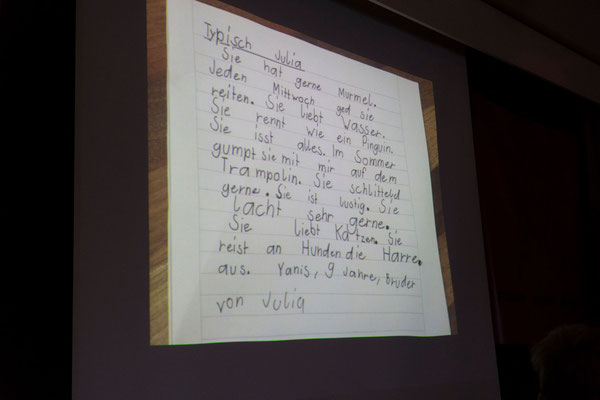 Typisch Julia
Sie hat gerne Murmel.
Jeden Mittwoch ged sie
reiten. Sie liebt Wasser.
Sie rennt wie ein Pinguin.
Sie isst alles. Im Sommer
gumpt sie mit mir auf dem
Trampolin. Sie schlitteld
gerne. Sie ist lustig. Sie
lacht sehr gerne.
Sie liebt Katzen. Sie
reist an Hunden die Harre.
aus. Yanis, 9 Jahre, Bruder
von Julia